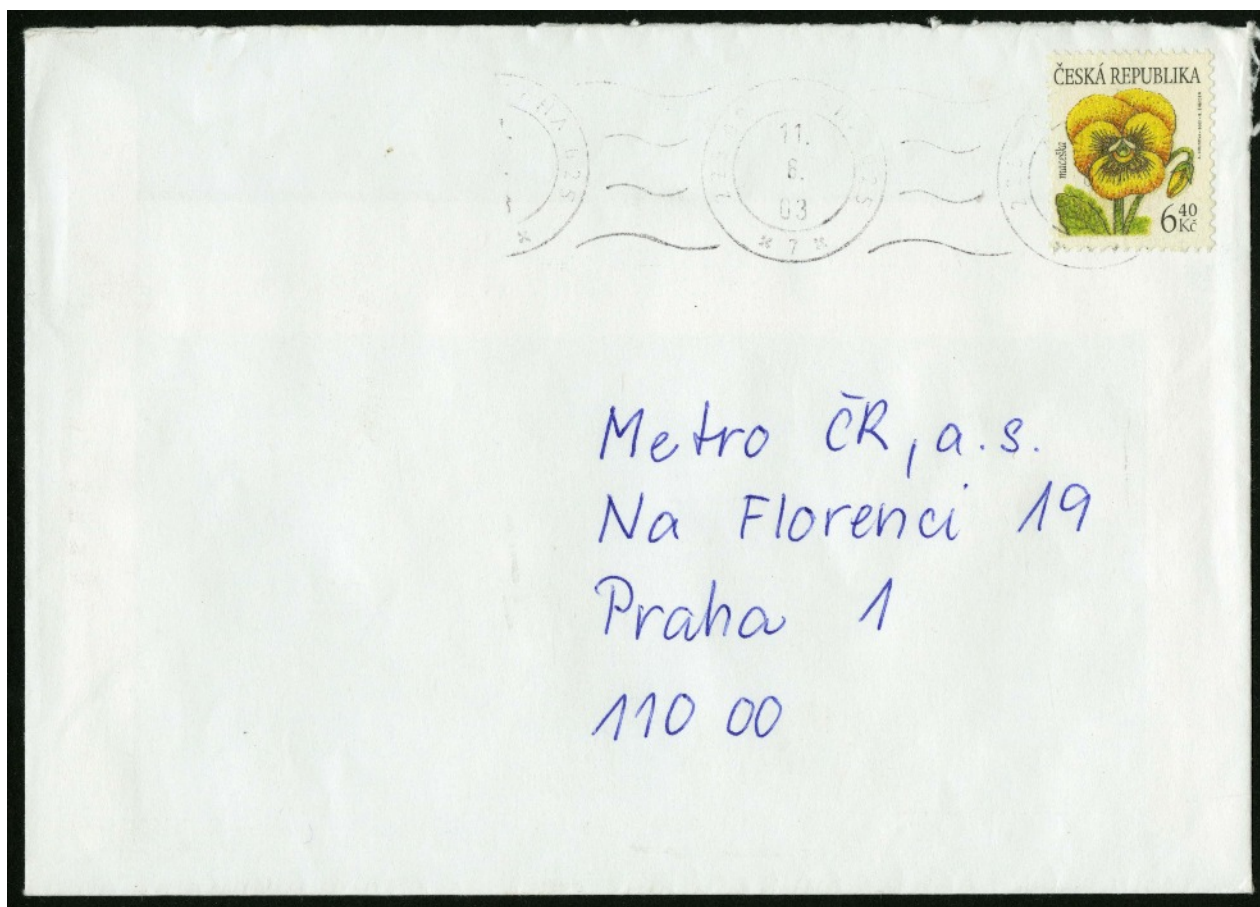 ČESKÁ REPUBLIKA
maceška
6 40
Kč
11.
6.
03
* 7 *
Metro ČR, a.s.
Na Florenci 19
Praha 1
110 00